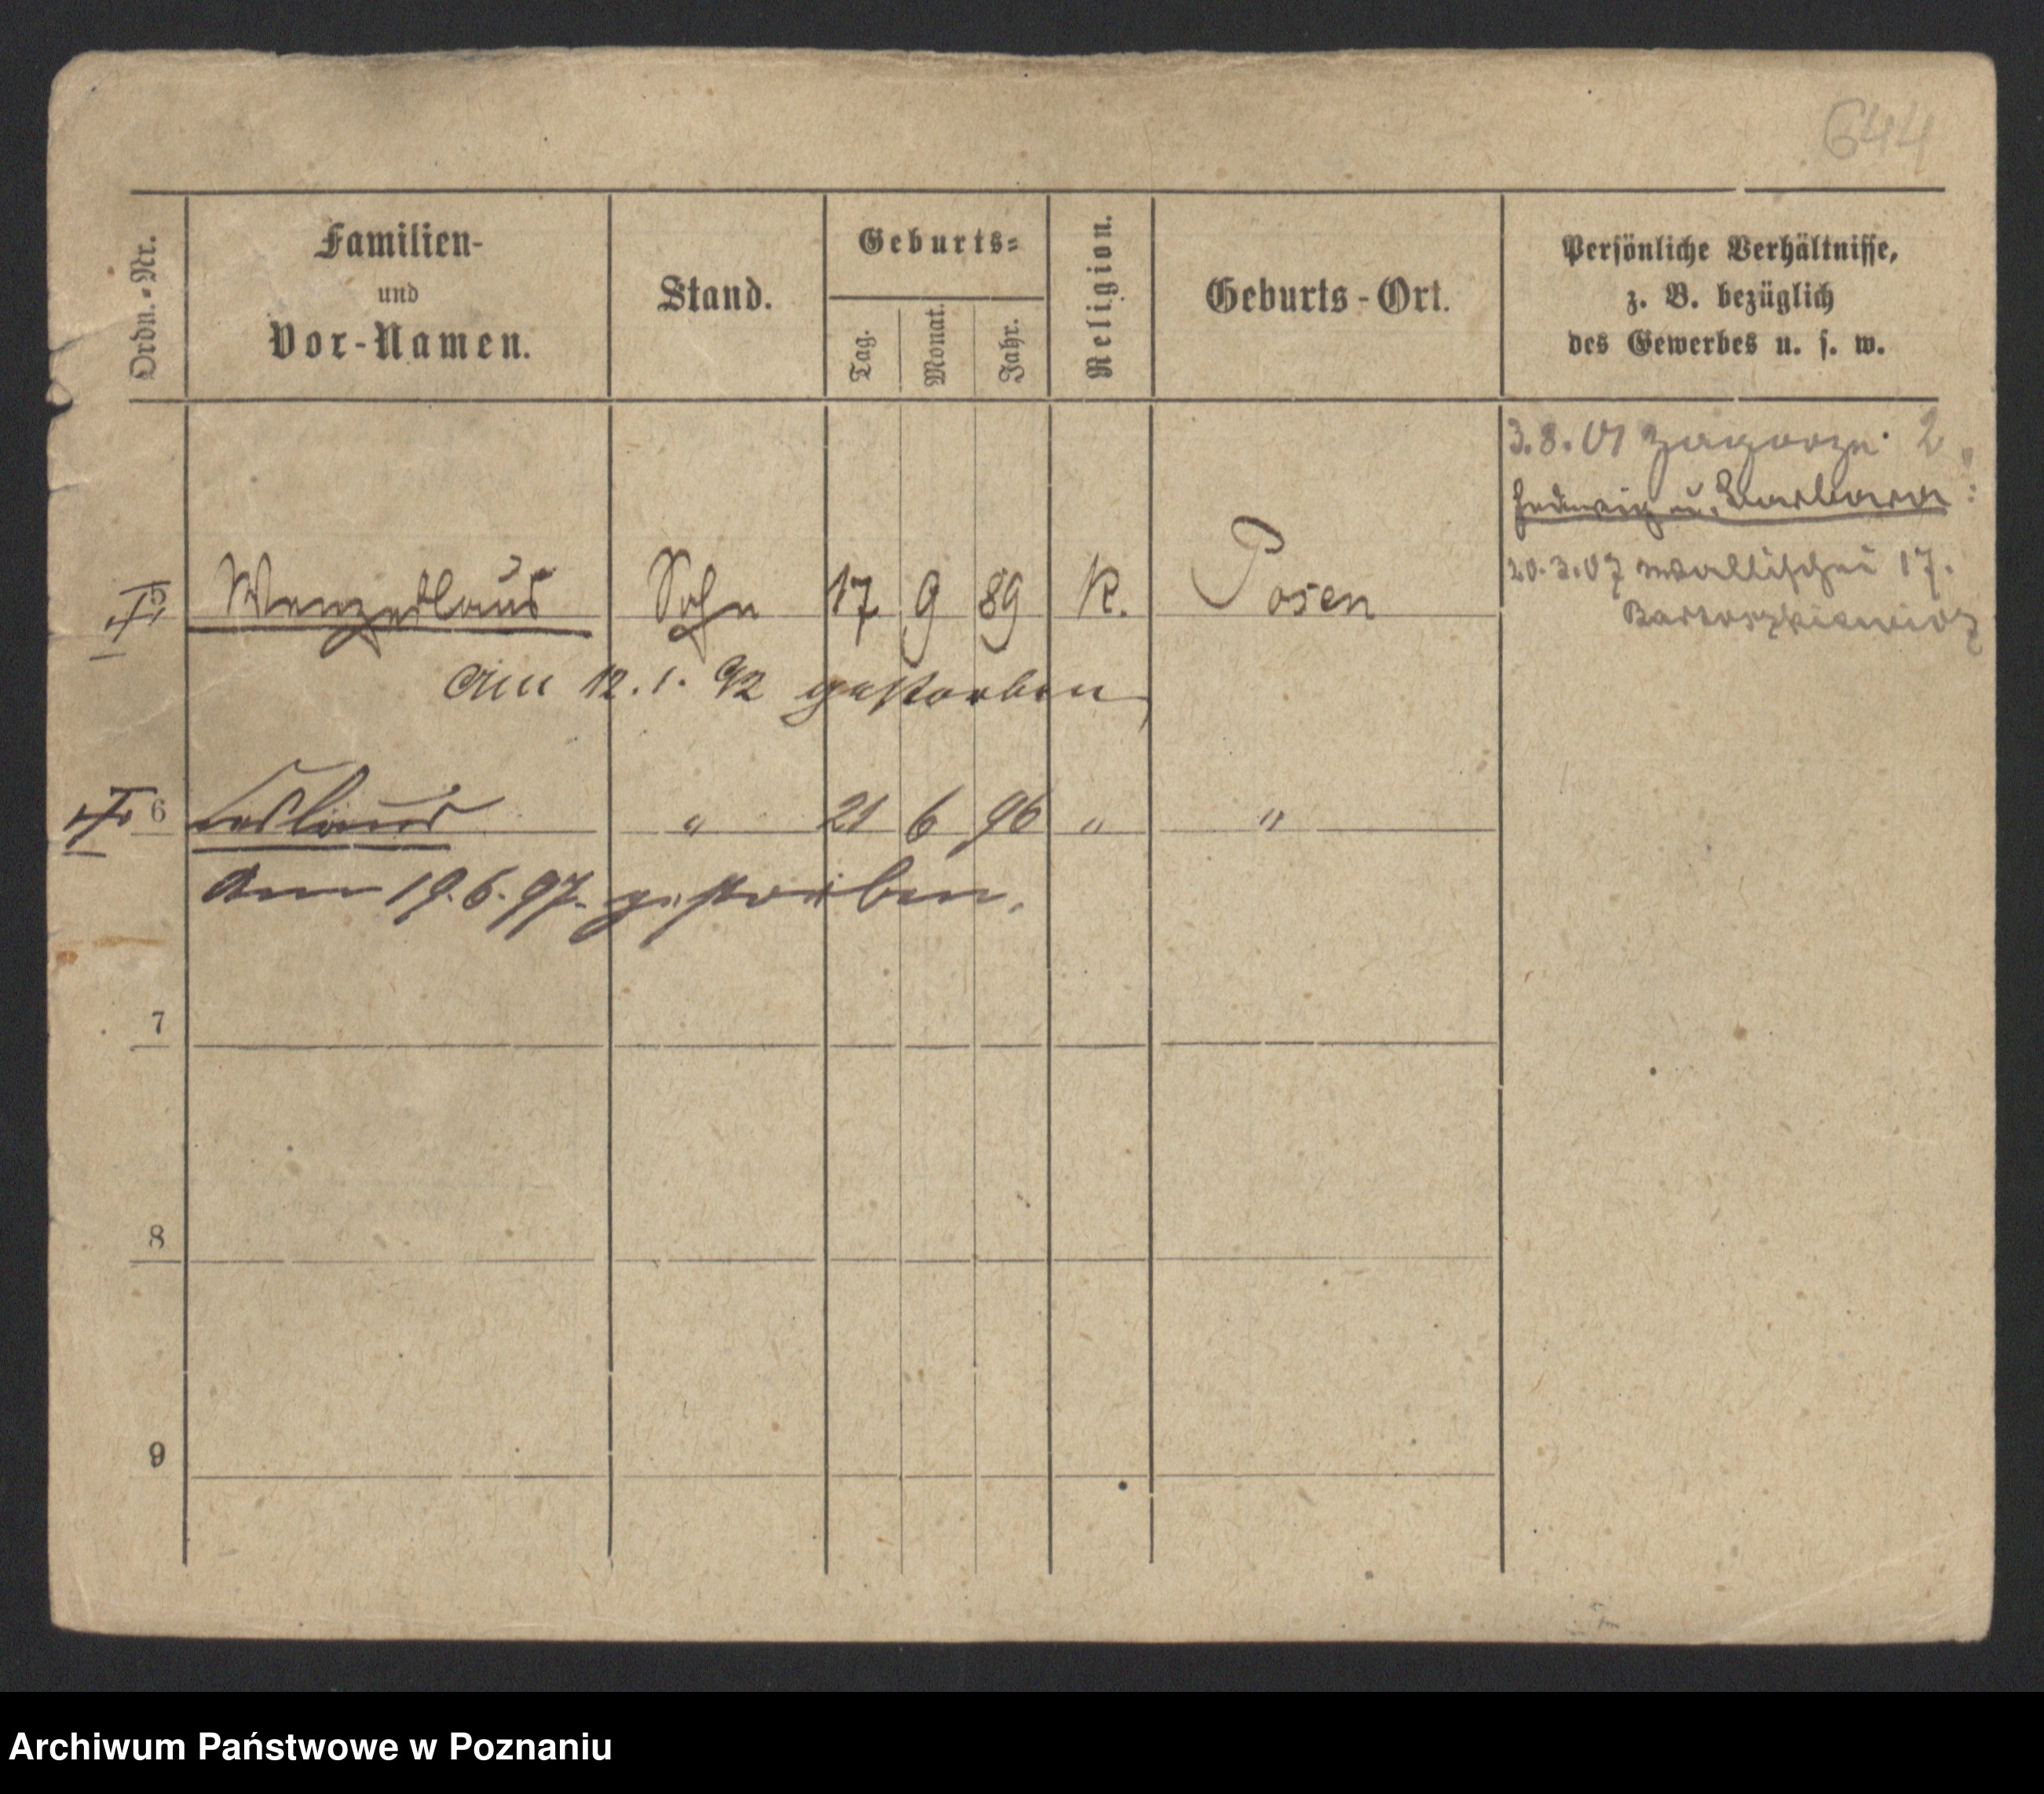 644
Ordn.-Nr.
Familien-
und
Vor-Namen.
Stand.
Geburts-
Tag.
Monat.
Jahr.
Religion.
Geburts-Ort.
Persönliche Verhältnisse,
z. B. bezüglich
des Gewerbes u. s. w.
3.8.01 Zagorze 2
Hedwig u. Barbara
20.3.07 Wallischei 17.
Bartoszkiewicz
5 Wenzeslaus Sohn 17 9 89 K. Posen
am 12.1.92 gestorben
6 Ceslaus " 21 6 96 " "
Am 19.6.97. gestorben.
7
8
9
Archiwum Państwowe w Poznaniu